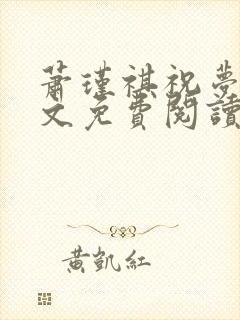 蕭瑾祺祝夢
文免費閱讀
黃凱紅